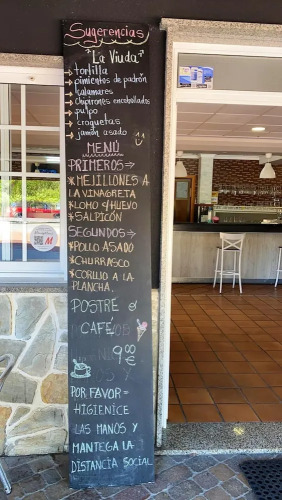 Sugerencias
"La Viuda"
→ tortilla
→ pimientos de padrón
→ calamares
→ chipirones encebollados
→ pulpo
→ croquetas
→ jamón asado
MENÚ
PRIMEROS →
*MEJILLONES A
LA VINAGRETA
*LOMO C/HUEVO
*SALPICÓN
SEGUNDOS →
*POLLO ASADO
*CHURRASCO
*CORUJO A LA
PLANCHA.
POSTRE ó
CAFÉ
9,00€
POR FAVOR =
HIGIENICE
LAS MANOS Y
MANTEGA LA
DISTANCIA SOCIAL